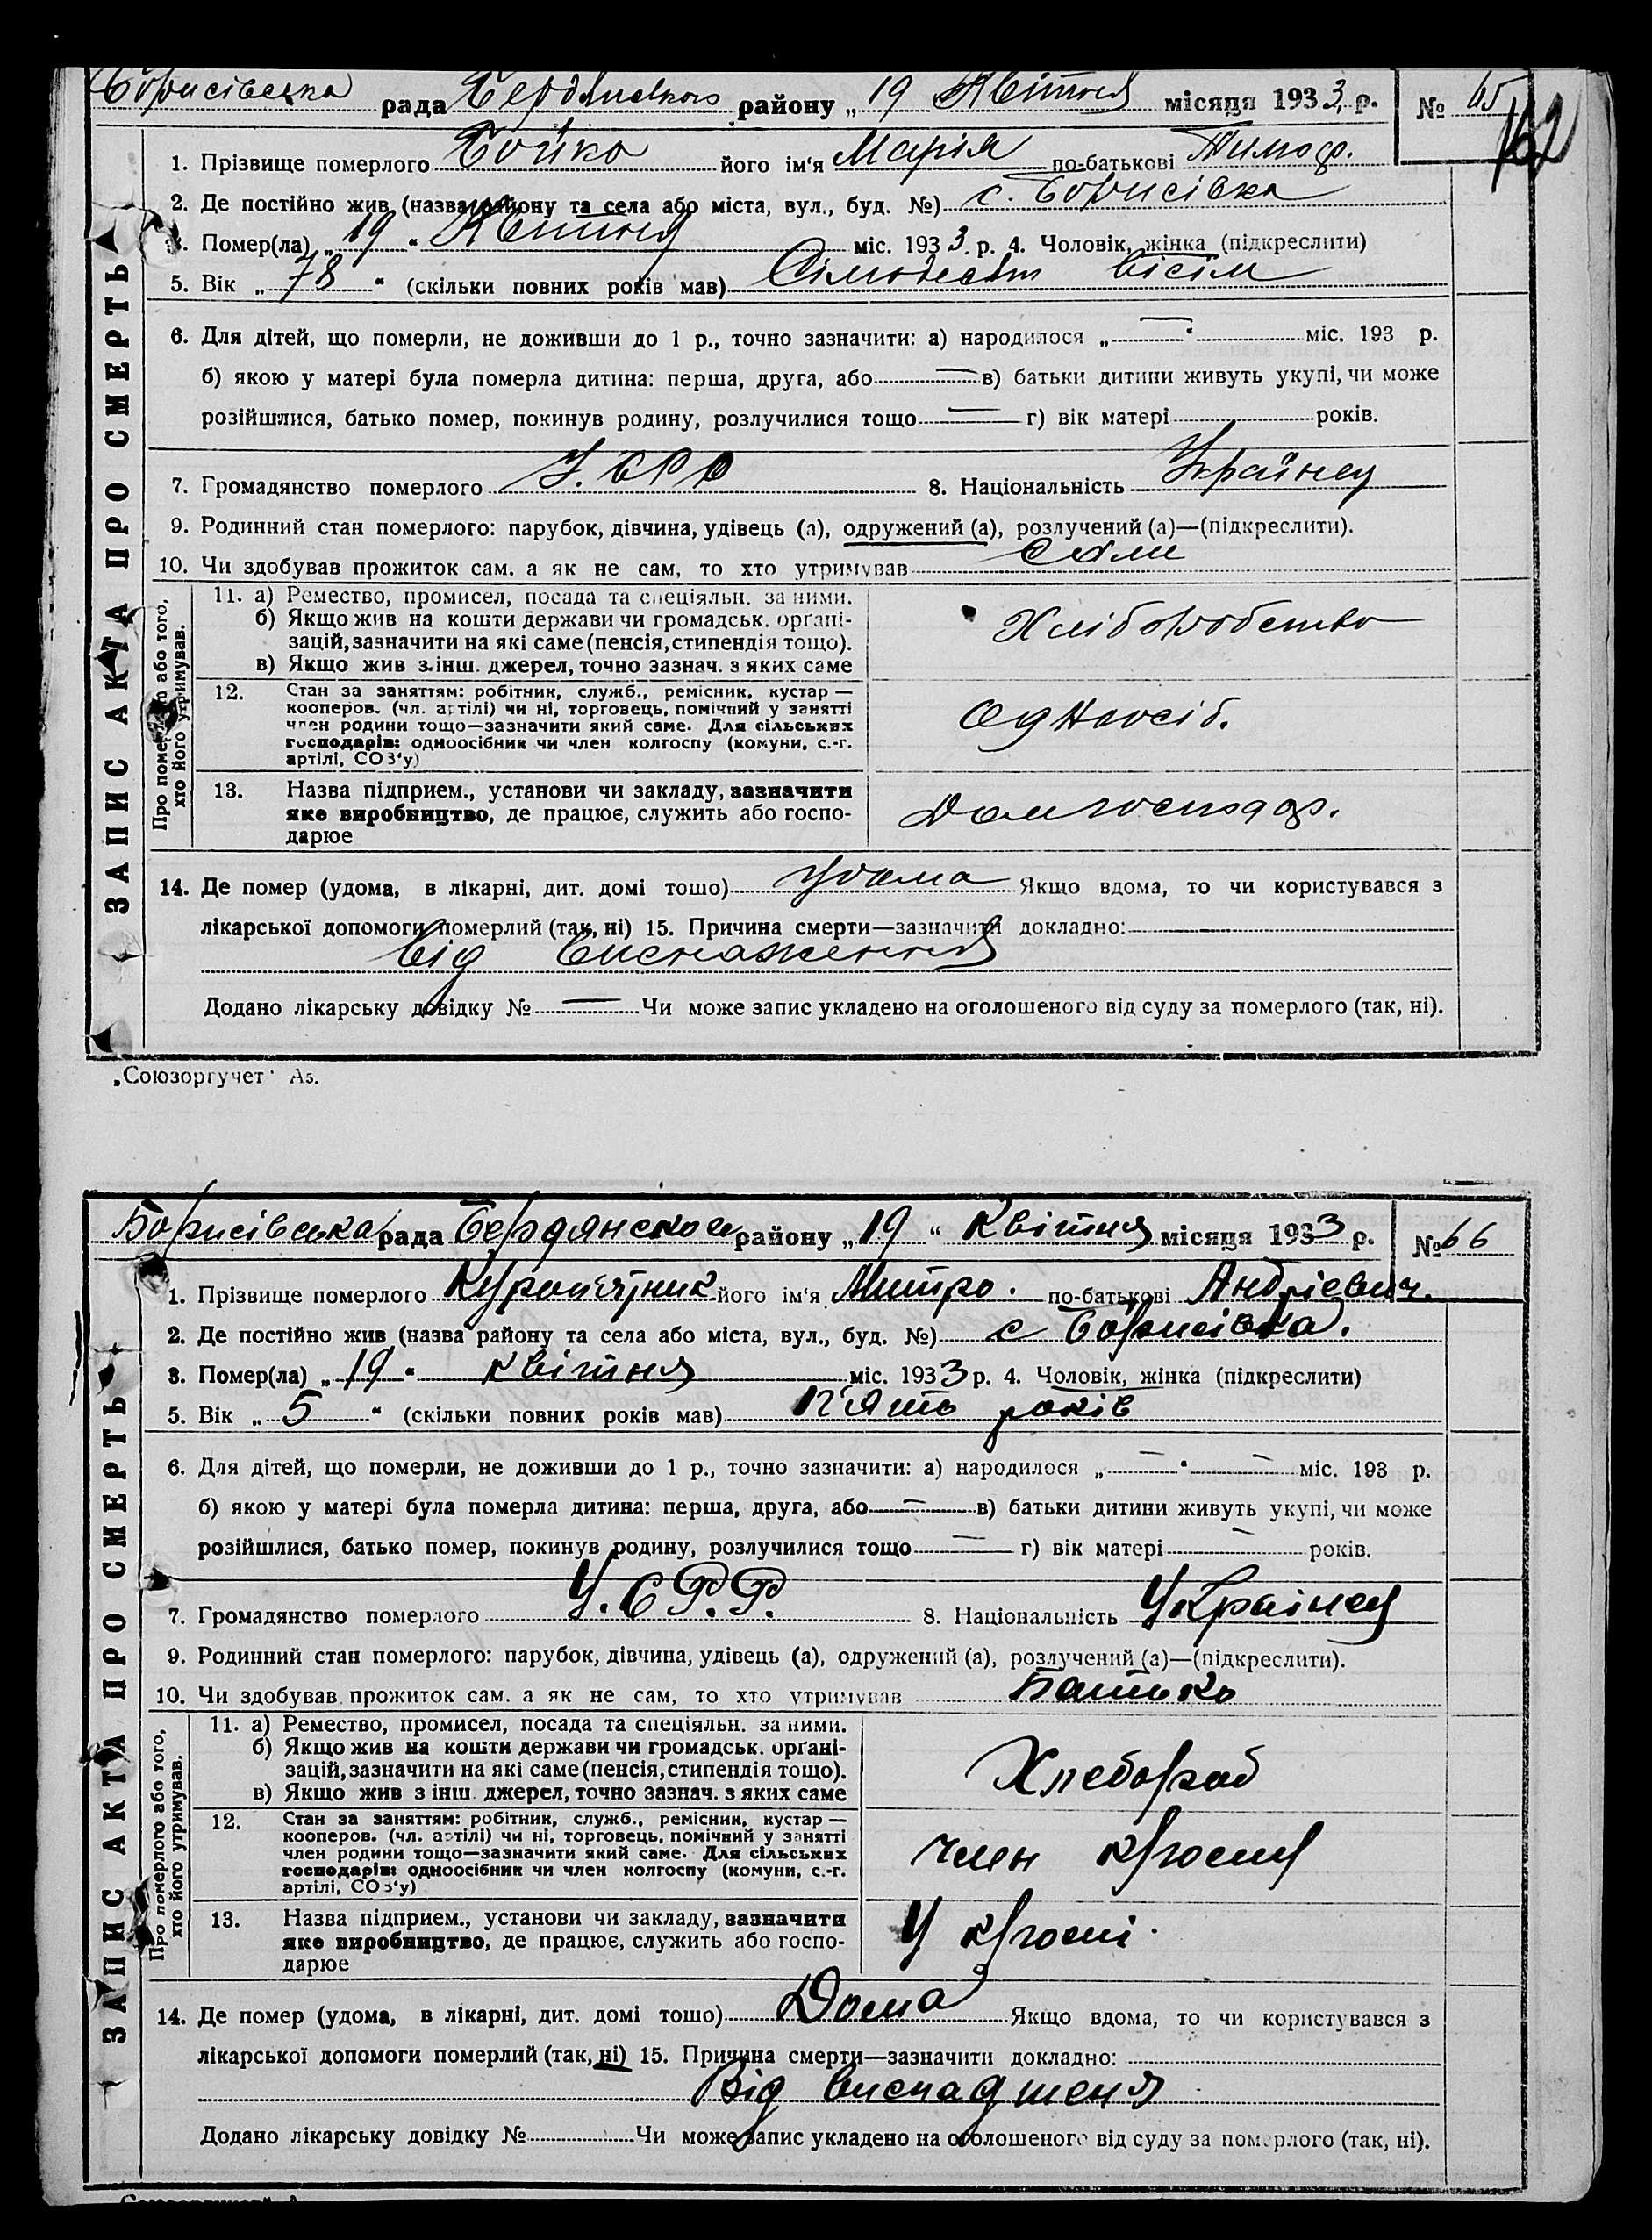 Борисівська рада Бердянського району „19 Квітня місяця 1933 р. № 65
162
1. Прізвище померлого Бойко його ім'я Марія по-батькові Тимоф.
2. Де постійно жив (назва району та села або міста, вул., буд. №) с. Борисівка
3. Помер(ла) „19" Квітня міс. 1933 р. 4. Чоловік, жінка (підкреслити)
5. Вік „78" (скільки повних років мав) Сімодесят вісім
6. Для дітей, що померли, не доживши до 1 р., точно зазначити: а) народилося „—" міс. 193 р.
б) якою у матері була померла дитина: перша, друга, або — в) батьки дитини живуть укупі, чи може
розійшлися, батько помер, покинув родину, розлучилися тощо — г) вік матері років.
7. Громадянство померлого У.СРР 8. Національність Українец
9. Родинний стан померлого: парубок, дівчина, удівець (а), одружений (а), розлучений (а)—(підкреслити).
10. Чи здобував прожиток сам. а як не сам, то хто утримував сами
ЗАПИС АКТА ПРО СМЕРТЬ
Про померлого або того, хто його утримував.
11. а) Ремество, промисел, посада та спеціяльн. за ними.
б) Якщо жив на кошти держави чи громадськ. орґані-
зацій, зазначити на які саме (пенсія, стипендія тощо).
в) Якщо жив з інш. джерел, точно зазнач. з яких саме
Хліборобство
12. Стан за заняттям: робітник, служб., ремісник, кустар —
кооперов. (чл. артілі) чи ні, торговець, помічний у занятті
член родини тощо—зазначити який саме. Для сільських
господарів: одноосібник чи член колгоспу (комуни, с.-г.
артілі, СОЗ'у)
Одноосіб.
13. Назва підприєм., установи чи закладу, зазначити
яке виробництво, де працює, служить або госпо-
дарює
Домгосподар.
14. Де помер (удома, в лікарні, дит. домі тошо) Удома Якщо вдома, то чи користувався з
лікарської допомоги померлий (так, ні) 15. Причина смерти—зазначити докладно:
Від виснаження
Додано лікарську довідку № — Чи може запис укладено на оголошеного від суду за померлого (так, ні).
„Союзоргучет" Аз.
Борисівська рада Бердянского району „19" Квітня місяця 1933 р. № 66
1. Прізвище померлого Куропятник його ім'я Митро. по-батькові Андрієвич.
2. Де постійно жив (назва району та села або міста, вул., буд. №) с Борисівка.
3. Помер(ла) „19" квітня міс. 1933 р. 4. Чоловік, жінка (підкреслити)
5. Вік „5" (скільки повних років мав) П'ять років
6. Для дітей, що померли, не доживши до 1 р., точно зазначити: а) народилося „—" — міс. 193 р.
б) якою у матері була померла дитина: перша, друга, або — в) батьки дитини живуть укупі, чи може
розійшлися, батько помер, покинув родину, розлучилися тощо — г) вік матері — років.
7. Громадянство померлого У.С.Р.Р. 8. Національність Українец
9. Родинний стан померлого: парубок, дівчина, удівець (а), одружений (а), розлучений (а)—(підкреслити).
10. Чи здобував прожиток сам. а як не сам, то хто утримував Батько
ЗАПИС АКТА ПРО СМЕРТЬ
Про померлого або того, хто його утримував.
11. а) Ремество, промисел, посада та спеціяльн. за ними.
б) Якщо жив на кошти держави чи громадськ. орґані-
зацій, зазначити на які саме (пенсія, стипендія тощо).
в) Якщо жив з інш. джерел, точно зазнач. з яких саме
Хлебораб
12. Стан за заняттям: робітник, служб., ремісник, кустар —
кооперов. (чл. артілі) чи ні, торговець, помічний у занятті
член родини тощо—зазначити який саме. Для сільських
господарів: одноосібник чи член колгоспу (комуни, с.-г.
артілі, СОЗ'у)
член к/госпу
13. Назва підприєм., установи чи закладу, зазначити
яке виробництво, де працює, служить або госпо-
дарює
У к/госпі.
14. Де помер (удома, в лікарні, дит. домі тошо) Дома Якщо вдома, то чи користувався з
лікарської допомоги померлий (так, ні) 15. Причина смерти—зазначити докладно:
Від виснадженя
Додано лікарську довідку № Чи може запис укладено на оголошеного від суду за померлого (так, ні).